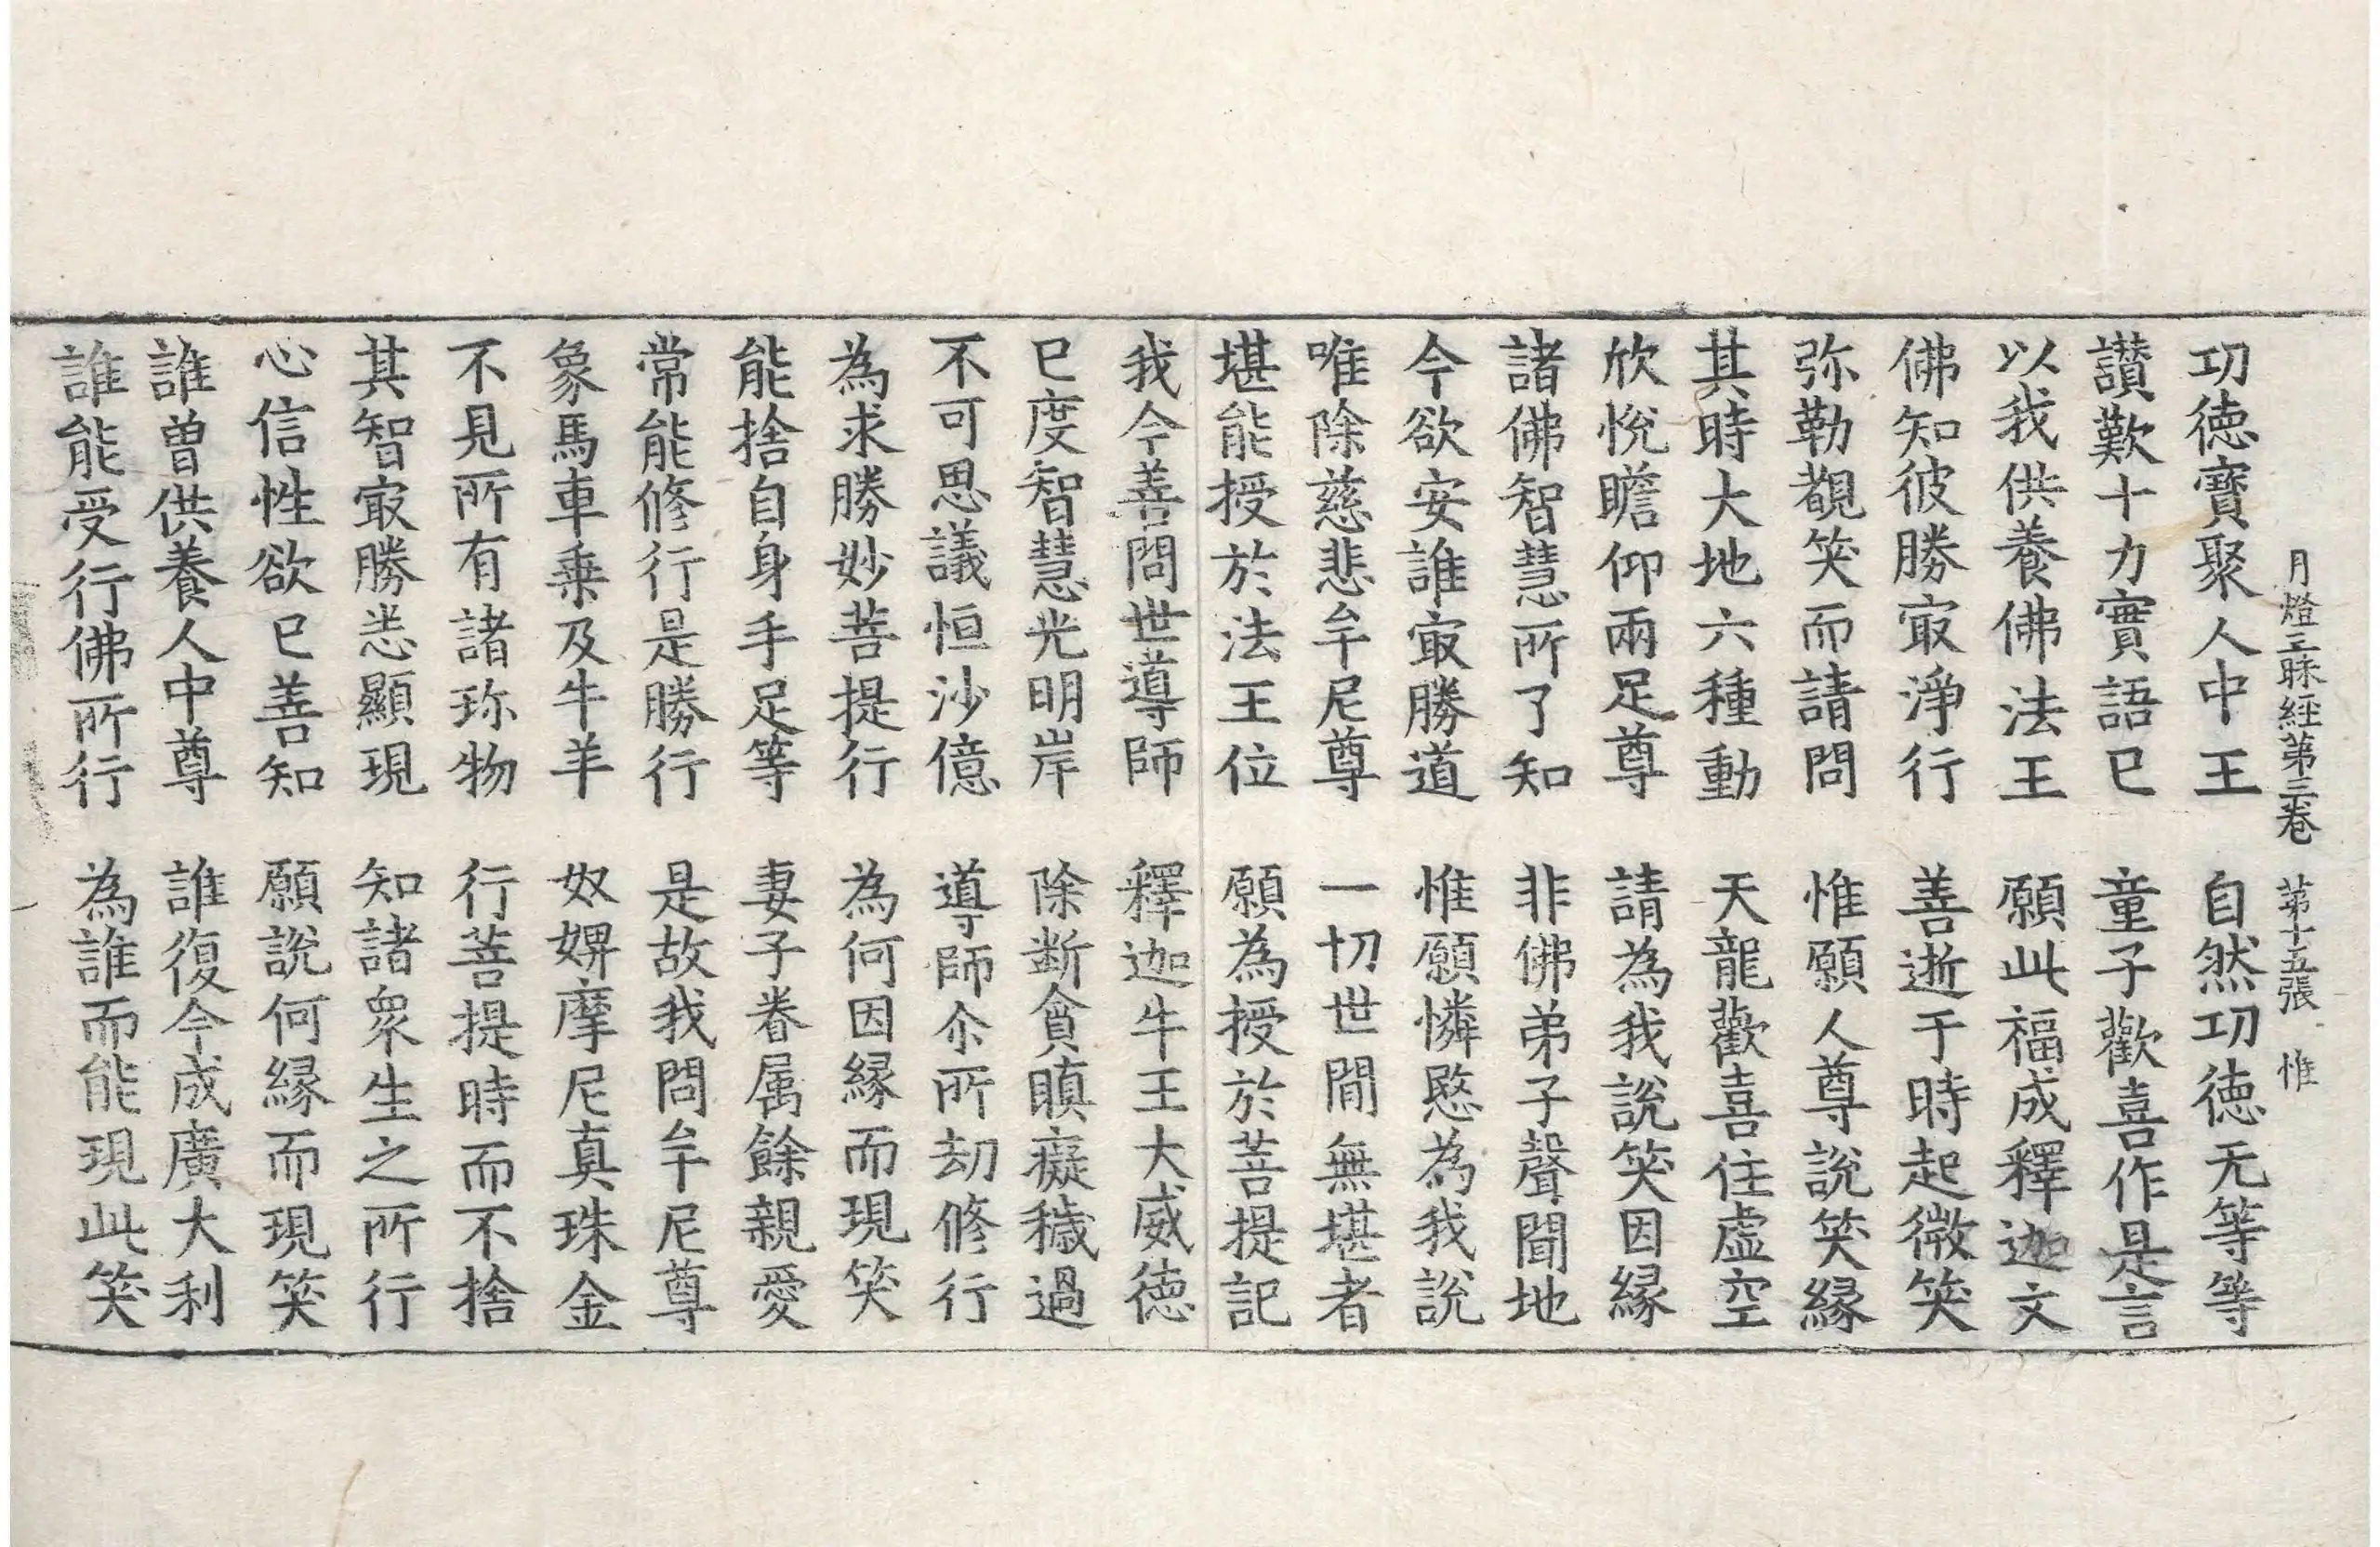 月燈三昧經第三卷 第十五張 惟
功德寶聚人中王 自然功德无等等
讃歎十力實語已 童子歡喜作是言
以我供養佛法王 願此福成釋迦文
佛知彼勝㝡淨行 善逝于時起微笑
弥勒覩笑而請問 惟願人尊說笑縁
其時大地六種動 天龍歡喜住虛空
欣悅瞻仰兩足尊 請為我說笑因縁
諸佛智慧所了知 非佛弟子聲聞地
今欲安誰㝡勝道 惟願憐愍為我說
唯除慈悲牟尼尊 一切世間無堪者
堪能授於法王位 願為授於菩提記
我今善問世導師 釋迦牛王大威德
已度智慧光明岸 除断貪瞋癡穢過
不可思議恒沙億 導師尒所劫修行
為求勝妙菩提行 為何因縁而現笑
能捨自身手足等 妻子眷属餘親愛
常能修行是勝行 是故我問牟尼尊
象馬車乗及牛羊 奴婢摩尼真珠金
不見所有諸珎物 行菩提時而不捨
其智㝡勝悉顯現 知諸衆生之所行
心信性欲已善知 願說何縁而現笑
誰曽供養人中尊 誰復今成廣大利
誰能受行佛所行 為誰而能現此笑